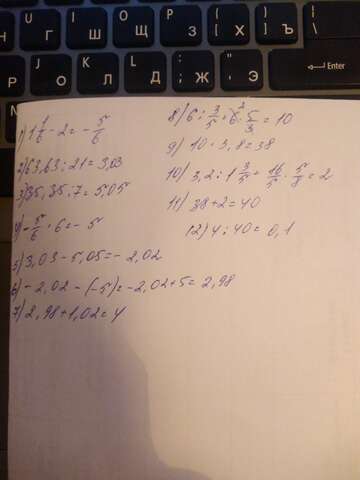 Г Ш Щ З Х Ъ
О Л Д Ж Э
1) 1 1/6 - 2 = - 5/6
2) 63,63 : 21 = 3,03
3) 35,35 : 7 = 5,05
4) - 5/6 · 6 = - 5
5) 3,03 - 5,05 = - 2,02
6) - 2,02 - (-5) = - 2,02 + 5 = 2,98
7) 2,98 + 1,02 = 4
8) 6 : 3/5 = 6 2 · 5/3 = 10
9) 10 · 3,8 = 38
10) 3,2 : 1 3/5 = 16/5 · 5/8 = 2
11) 38 + 2 = 40
12) 4 : 40 = 0,1